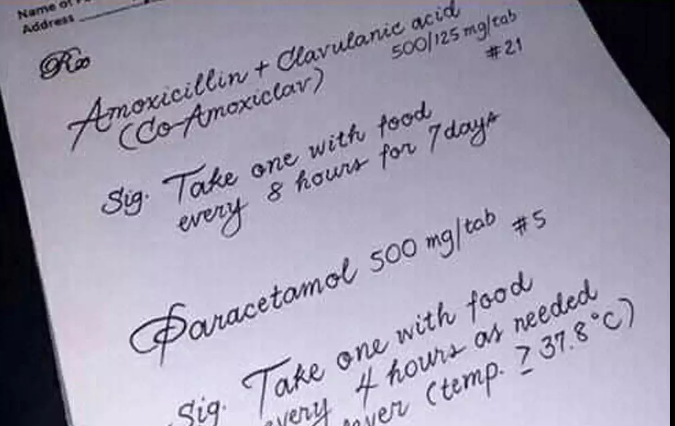 Name of
Address
Rx
Amoxicillin + Clavulanic acid
(Co-Amoxiclav) 500/125 mg/tab
#21
Sig. Take one with food
every 8 hours for 7 days
Paracetamol 500 mg/tab #5
Sig. Take one with food
every 4 hours as needed
(temp. ≥ 37.8°C)